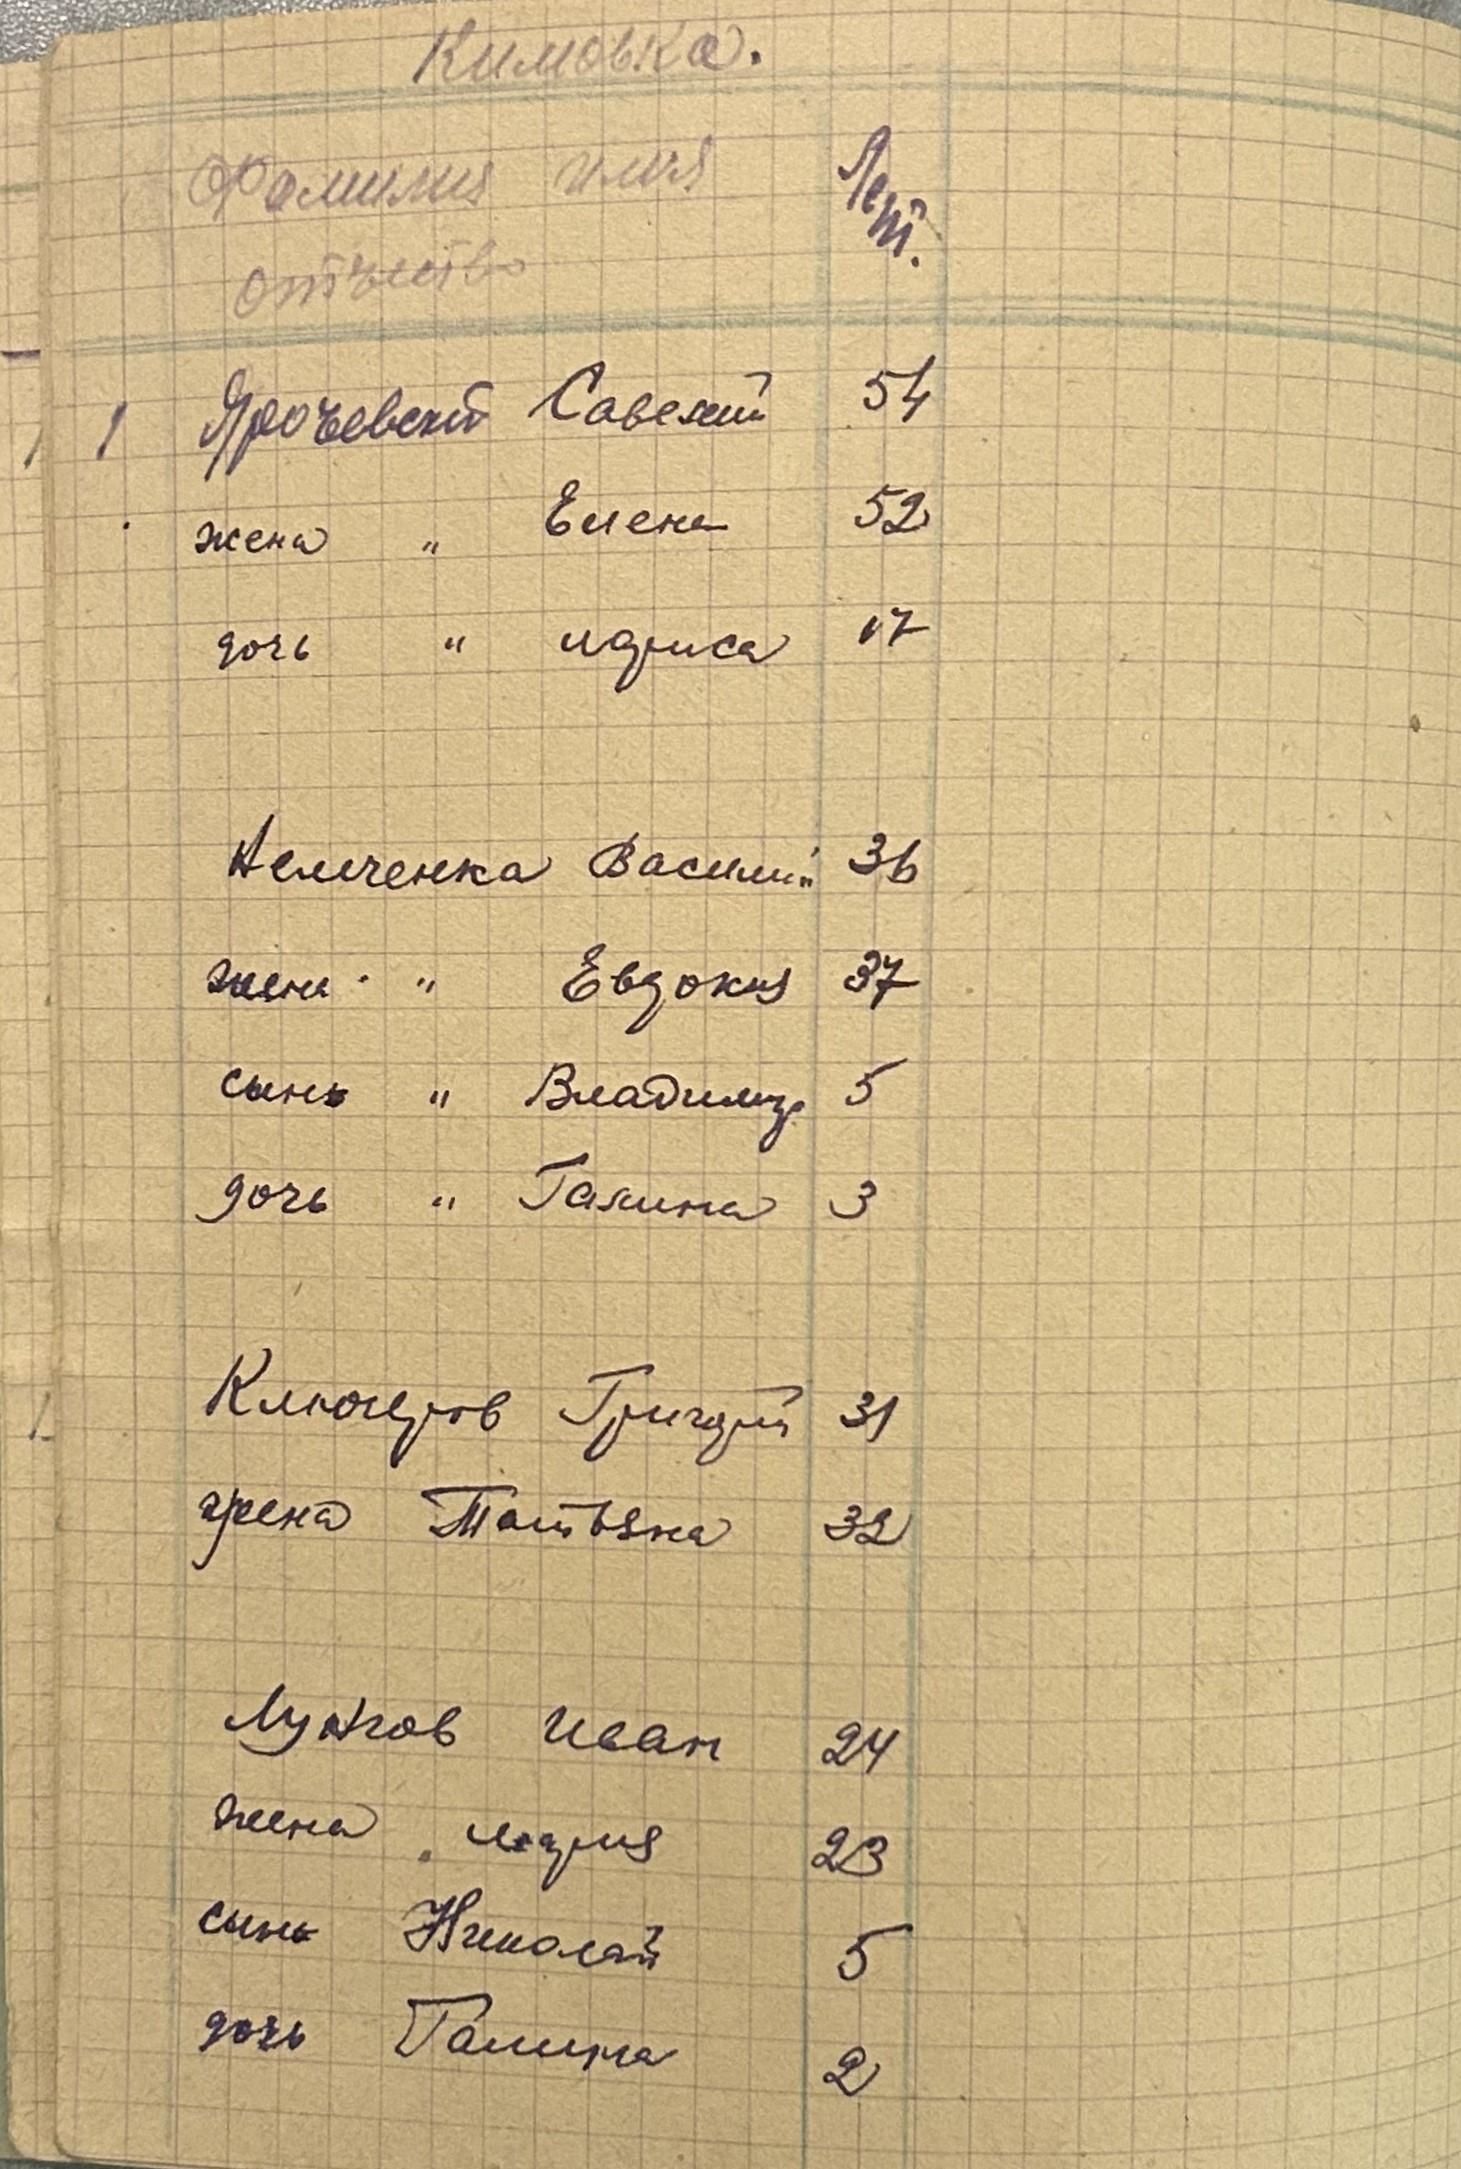 Кимовка.
Фамилия имя Лет.
отчество
1 Ярочевский Савелий 54
жена " Елена 52
дочь " лариса 17
Немченка Василий 36
жена " Евдокия 37
сынь " Владимир 5
дочь " Галина 3
Ключеров Григорий 31
жена Татьяна 32
Лужков иван 24
жена мария 23
сынь Николай 5
дочь Галина 2